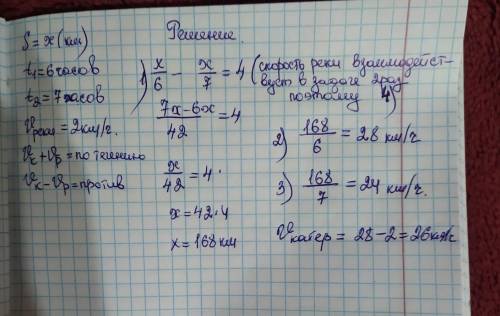 Решение.
S = x (км)
t₁=6 часов
t₂=7 часов
υреки=2км/г.
υк+υр=по течению
υк-υр=против
1) x/6 - x/7 = 4 (скорость реки взаимодейст-
вует в задаче 2раз
поэтому 4)
(7x-6x)/42 = 4
x/42 = 4.
x = 42·4
x = 168 км
2) 168/6 = 28 км/г
3) 168/7 = 24 км/г.
υкатер = 28-2=26км/г